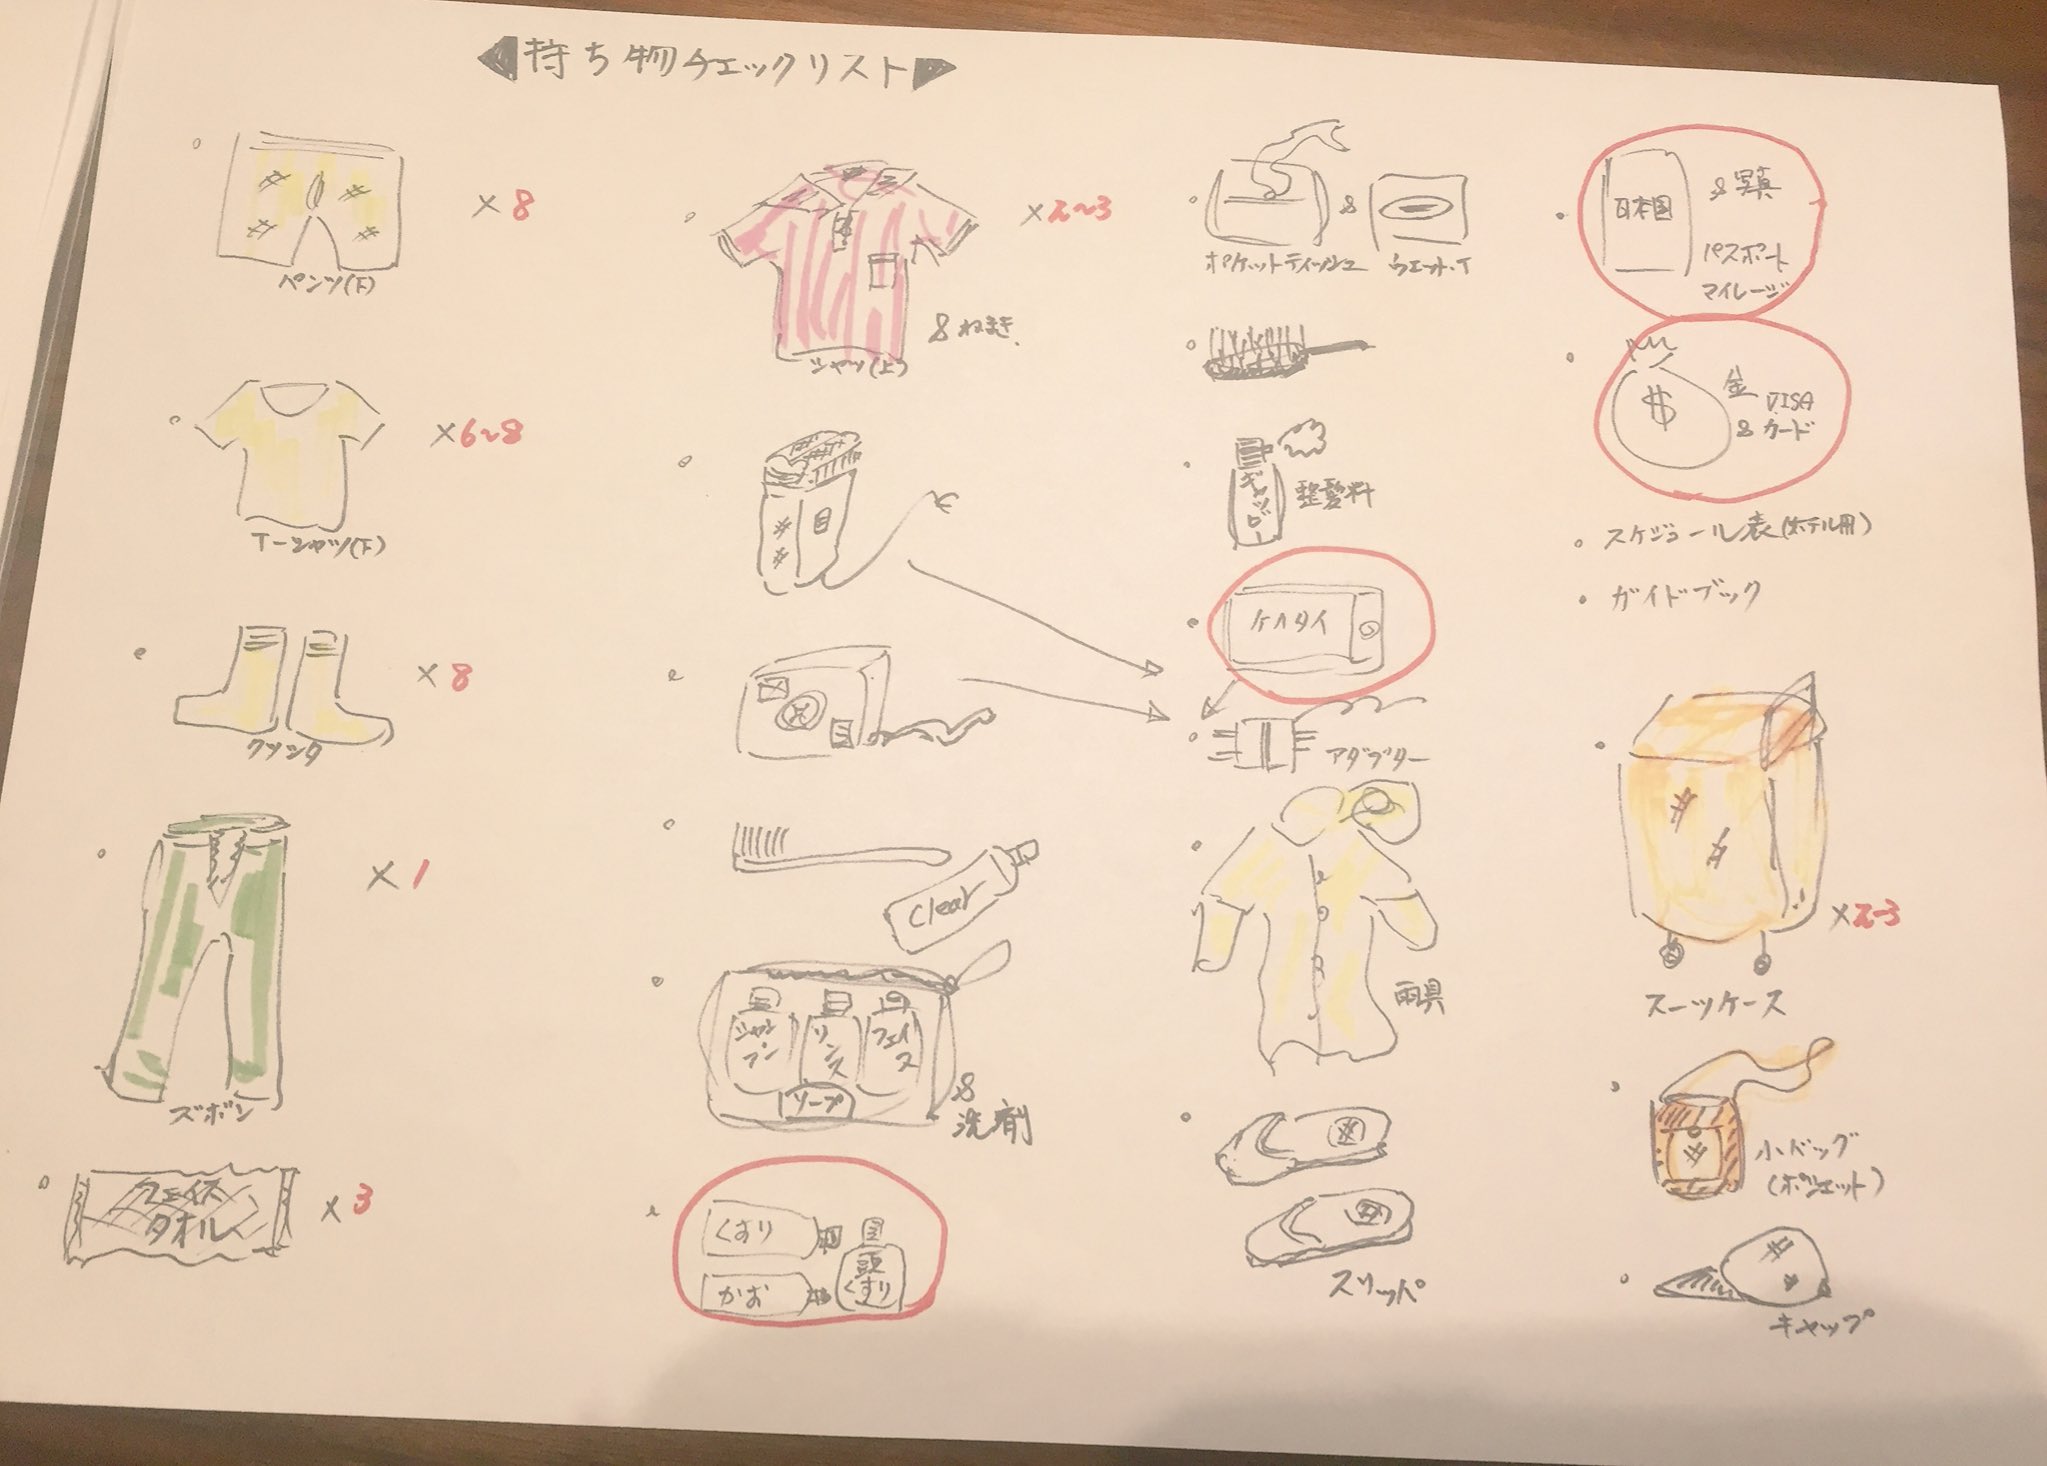 持ち物チェックリスト
×8
パンツ(下)
×6~8
T-シャツ(下)
×8
クツシタ
×1
ズボン
フェイス
タオル
×3
×2~3
&ねまき
シャツ(上)
clear
シャンプー
リンス
フェイス
ソープ
&
洗剤
くすり
かお
頭
くすり
&
ポケットティッシュ
ウェット・T
ギャツビ
整髪料
ケイタイ
アダプター
雨具
スリッパ
日本国
&写真
パスポート
マイレージ
$
金
VISA
&カード
スケジュール表(ホテル用)
ガイドブック
×2~3
スーツケース
小バッグ
(ポシェット)
キャップ